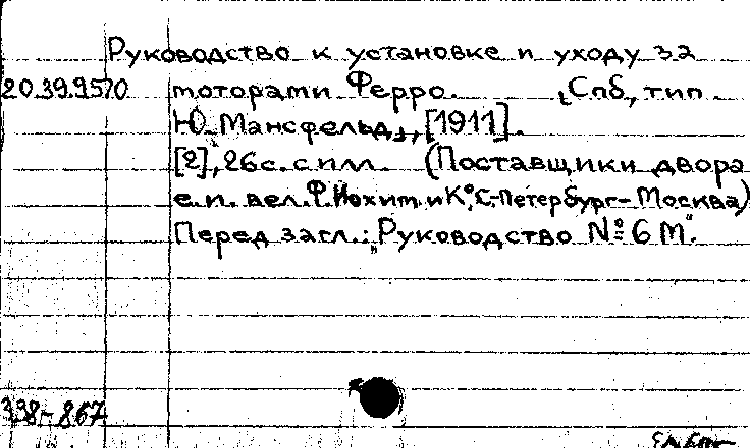 Руководство к установке и уходу за
20.39.9570 моторами Ферро. Спб, тип.
Ю. Мансфельд, [1911].
[2], 26 с. с илл. (Поставщики двора
е.и. вел. Ф. Иохим и К°, С.-Петербург - Москва)
Перед загл.: „Руководство № 6 М".
338-867